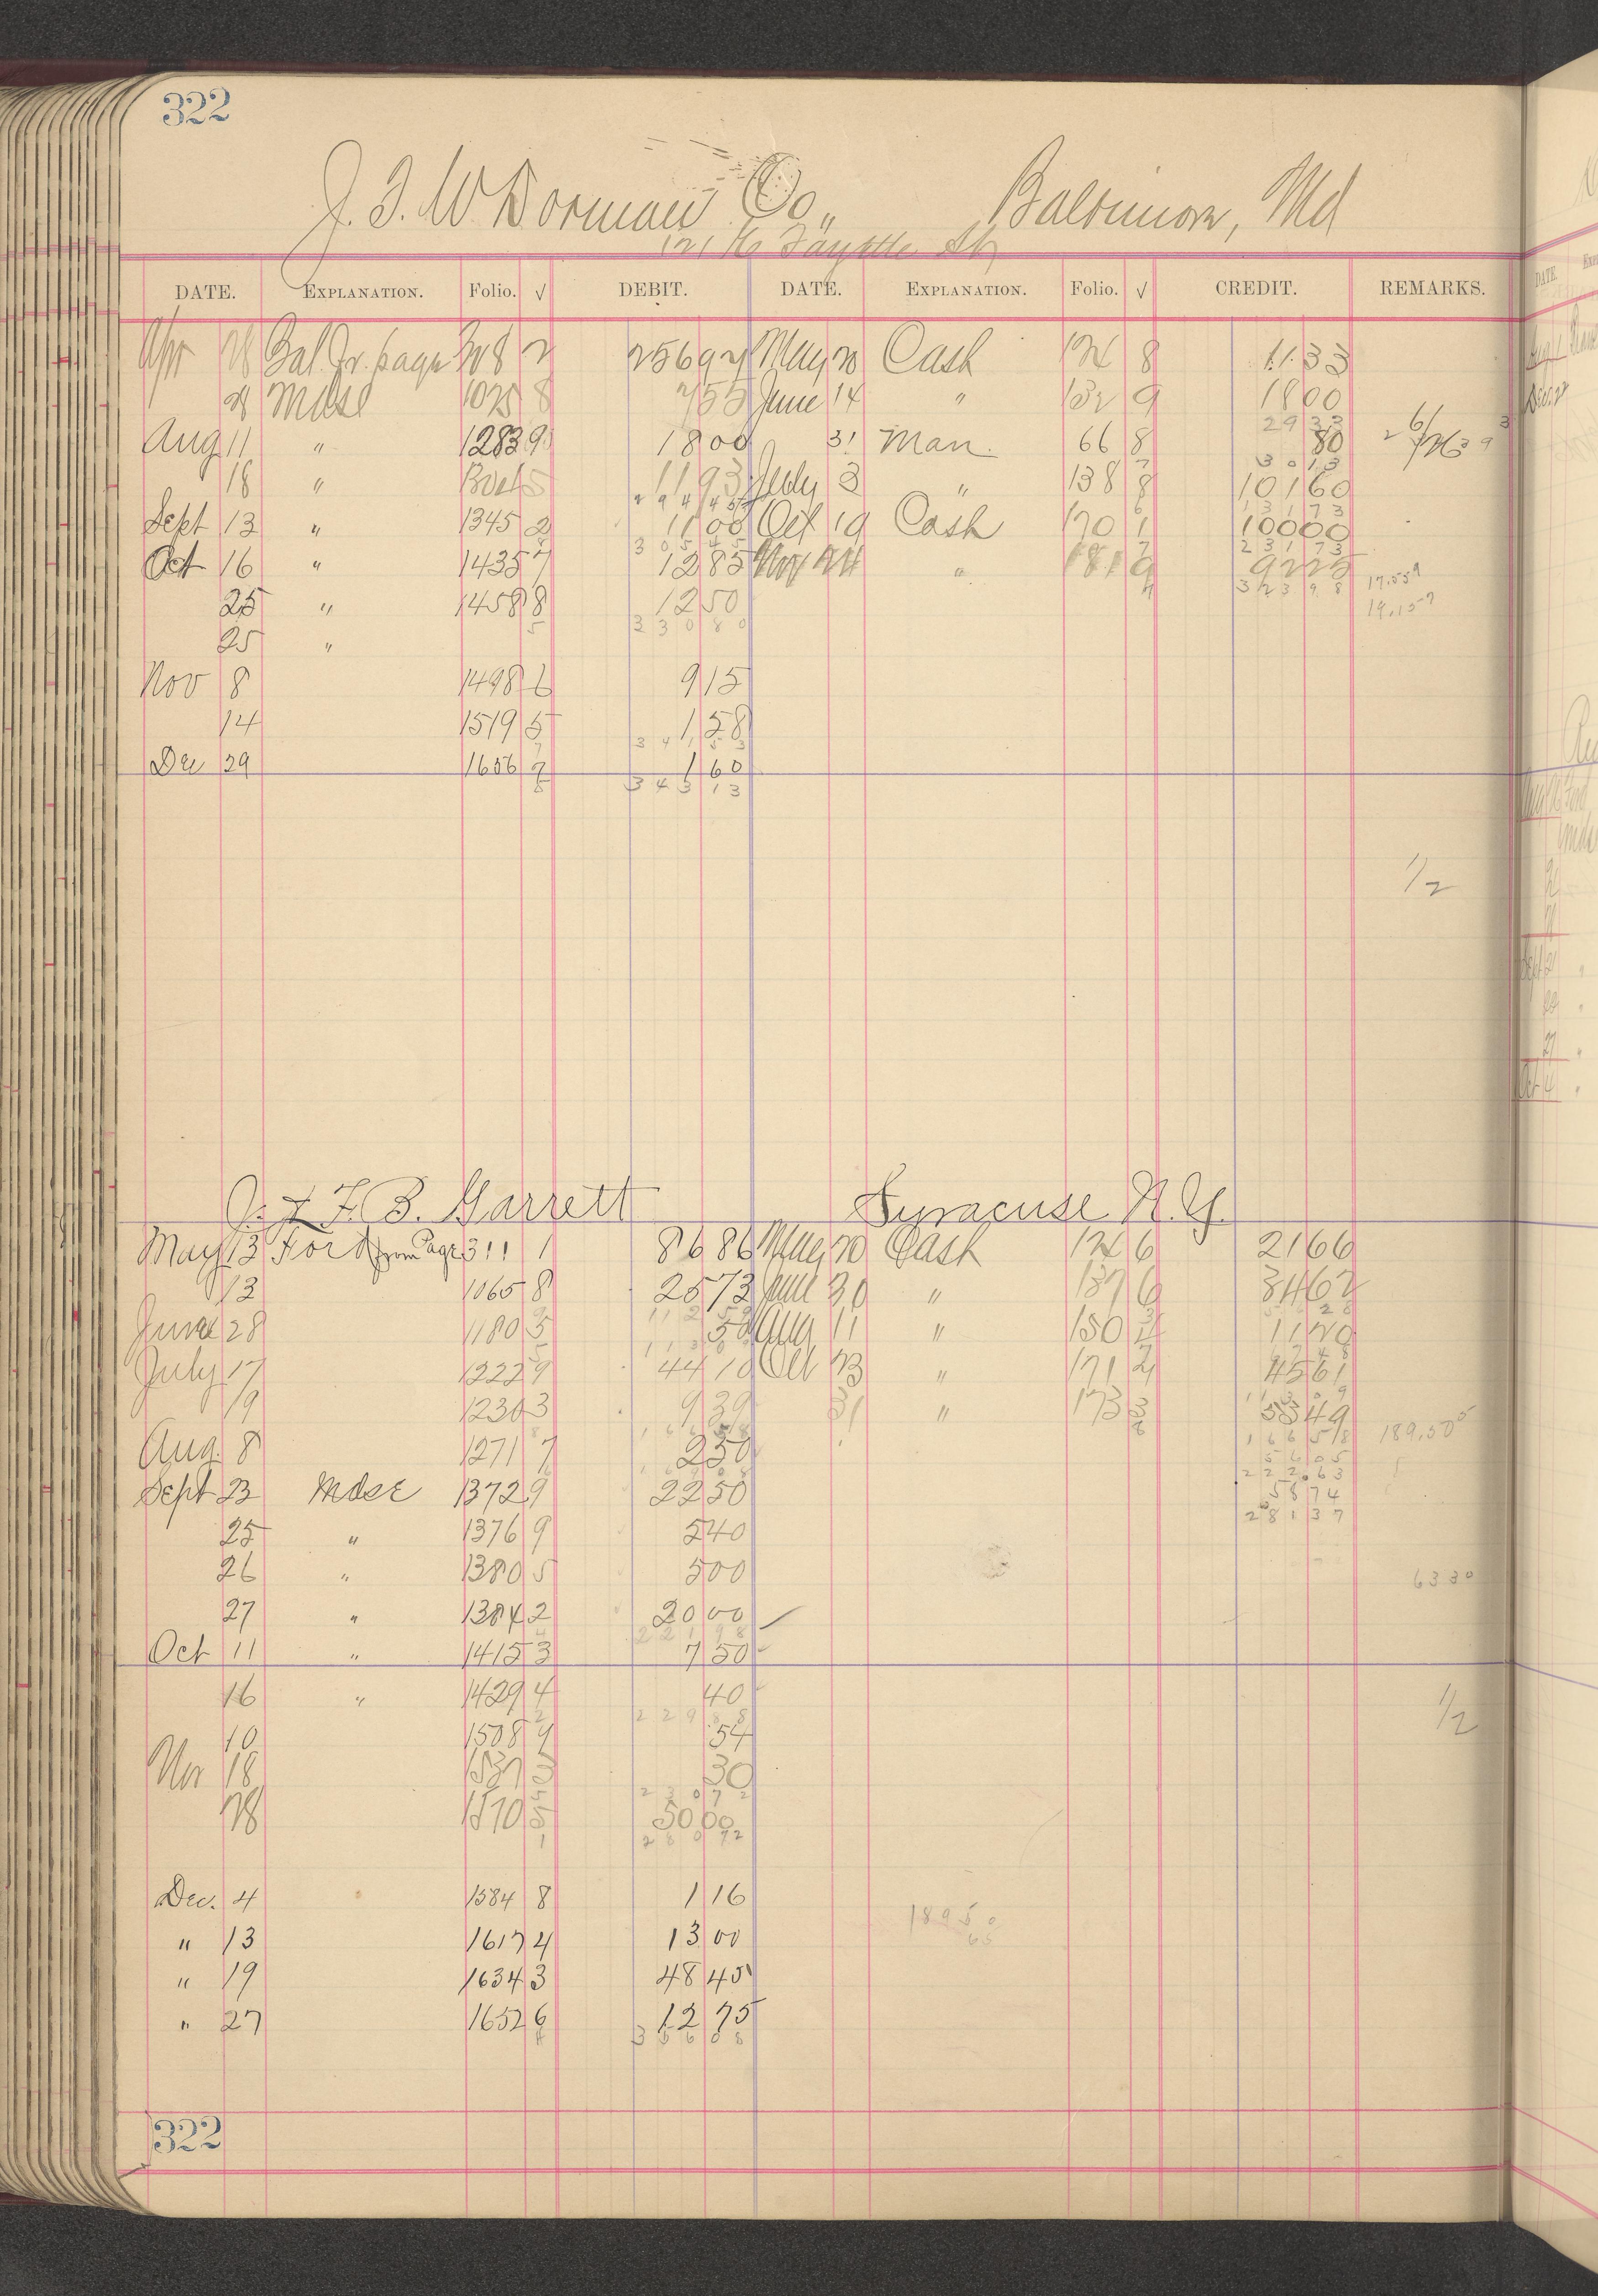 322
J. F. W. Dorman Co., Baltimore, Md
121 E Fayette St
DATE. EXPLANATION. Folio. √ DEBIT. DATE. EXPLANATION. Folio. √ CREDIT. REMARKS.
Apr 28 Bal. Fr. page 2 256 97 May 20 Cash 124 8 11 33
28 Mdse 8 7 55 June 14 " 132 9 18 00
29 33
Aug 11 " 1283 9 18 00 31 Man. 66 8 80
30 13
18 " 5 11 93 July 3 " 138 8 101 60
294 45 131 73
Sept 13 " 1345 2 11 00 Oct 19 Cash 170 1 100 00
305 45 231 73
Oct 16 " 1435 7 12 85 Nov 24 " 181 9 92 25
323 98
25 " 1458 8 12 50
330 80
25 "
Nov 8 1498 6 9 15
14 1519 5 1 58
341 53
Dec 29 1656 7 1 60
343 13
1/2
J. & F. B. Garrett Syracuse N.Y.
May 13 Ford from Page 311 1 86 86 May 20 Cash 124 6 21 66
13 1065 8 25 73 June 30 " 137 6 34 62
112 59 56 28
June 28 1180 5 50 Aug 11 " 150 11 20
July 17 1222 9 44 10 Oct 23 " 171 2 45 61
19 1230 3 9 39 31 " 173 3 53 49
166 58 189,50
Aug. 8 1271 7 2 50 56 05
222.63
Sept 23 Mdse 1372 9 22 50 58 74
281 37
25 " 1376 9 5 40
26 " 1380 5 5 00 63 30
27 " 1384 2 20 00
221 98
Oct 11 " 1415 3 7 50
16 " 1429 4 40
229 88
10 1508 4 54
Nov 18 1537 30
230 72
28 1570 50 00
280 72
1/2
Dec. 4 1584 8 1 16
189 50
" 13 1617 4 13 00
" 19 1634 3 48 45
" 27 1652 6 12 75
356 08
322